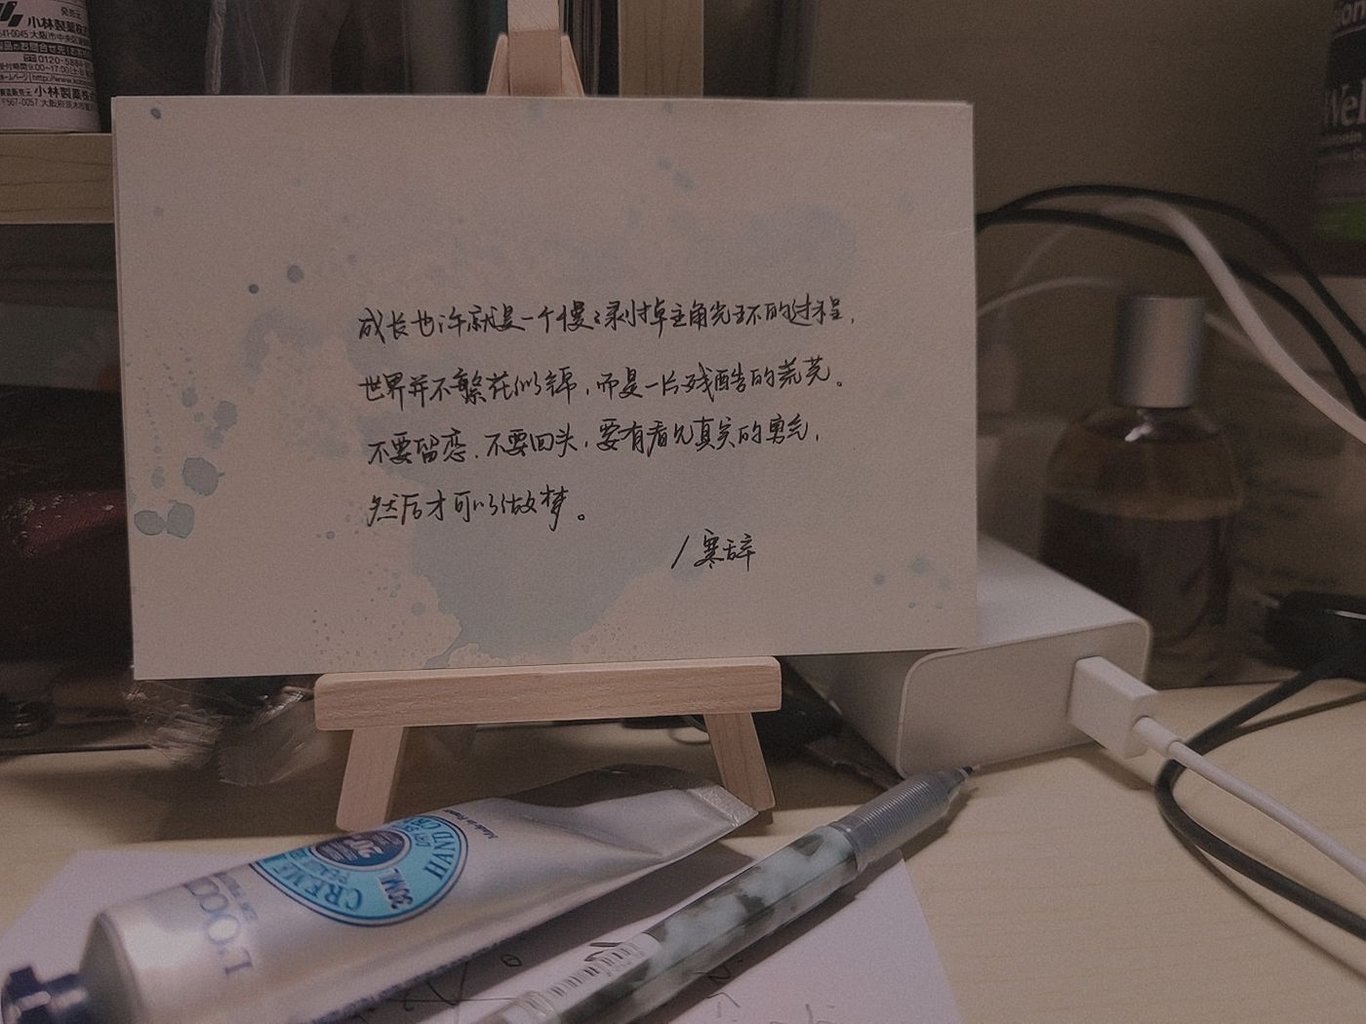 小林製薬
小林製薬
成长也许就是一个慢々剥掉主角光环的过程,
世界并不繁花似锦,而是一片残酷的荒芜。
不要留恋.不要回头,要有看见真实的勇气,
然后才可以做梦。
/寒辞
Wel
L'OCC
CREME
HAND CR
DRY SK
30ML
20%